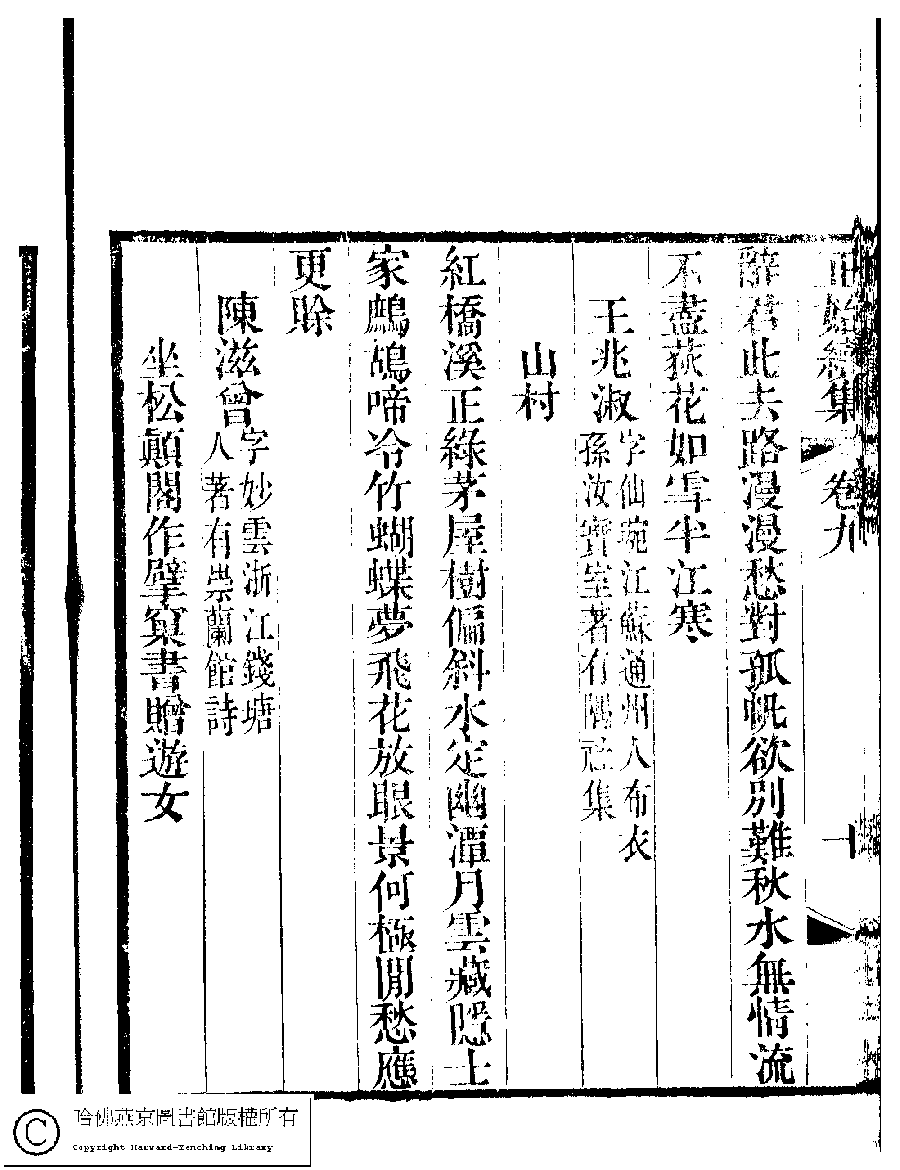 正始續集 卷九 十
辭君此去路漫漫愁對孤帆欲別難秋水無情流
不盡荻花如雪半江寒
王兆淑字仙琬江蘇通州人布衣
孫汝寶室著有隅社集
山村
紅橋溪正綠茅屋樹偏斜水定幽潭月雲藏隱士
家鷓鴣啼冷竹蝴蝶夢飛花放眼景何極閒愁應
更賒
陳滋曾字妙雲浙江錢塘
人著有崇蘭館詩
坐松顛閣作擘窠書贈遊女
哈佛燕京圖書館版權所有
Copyright Harvard-Yenching Library